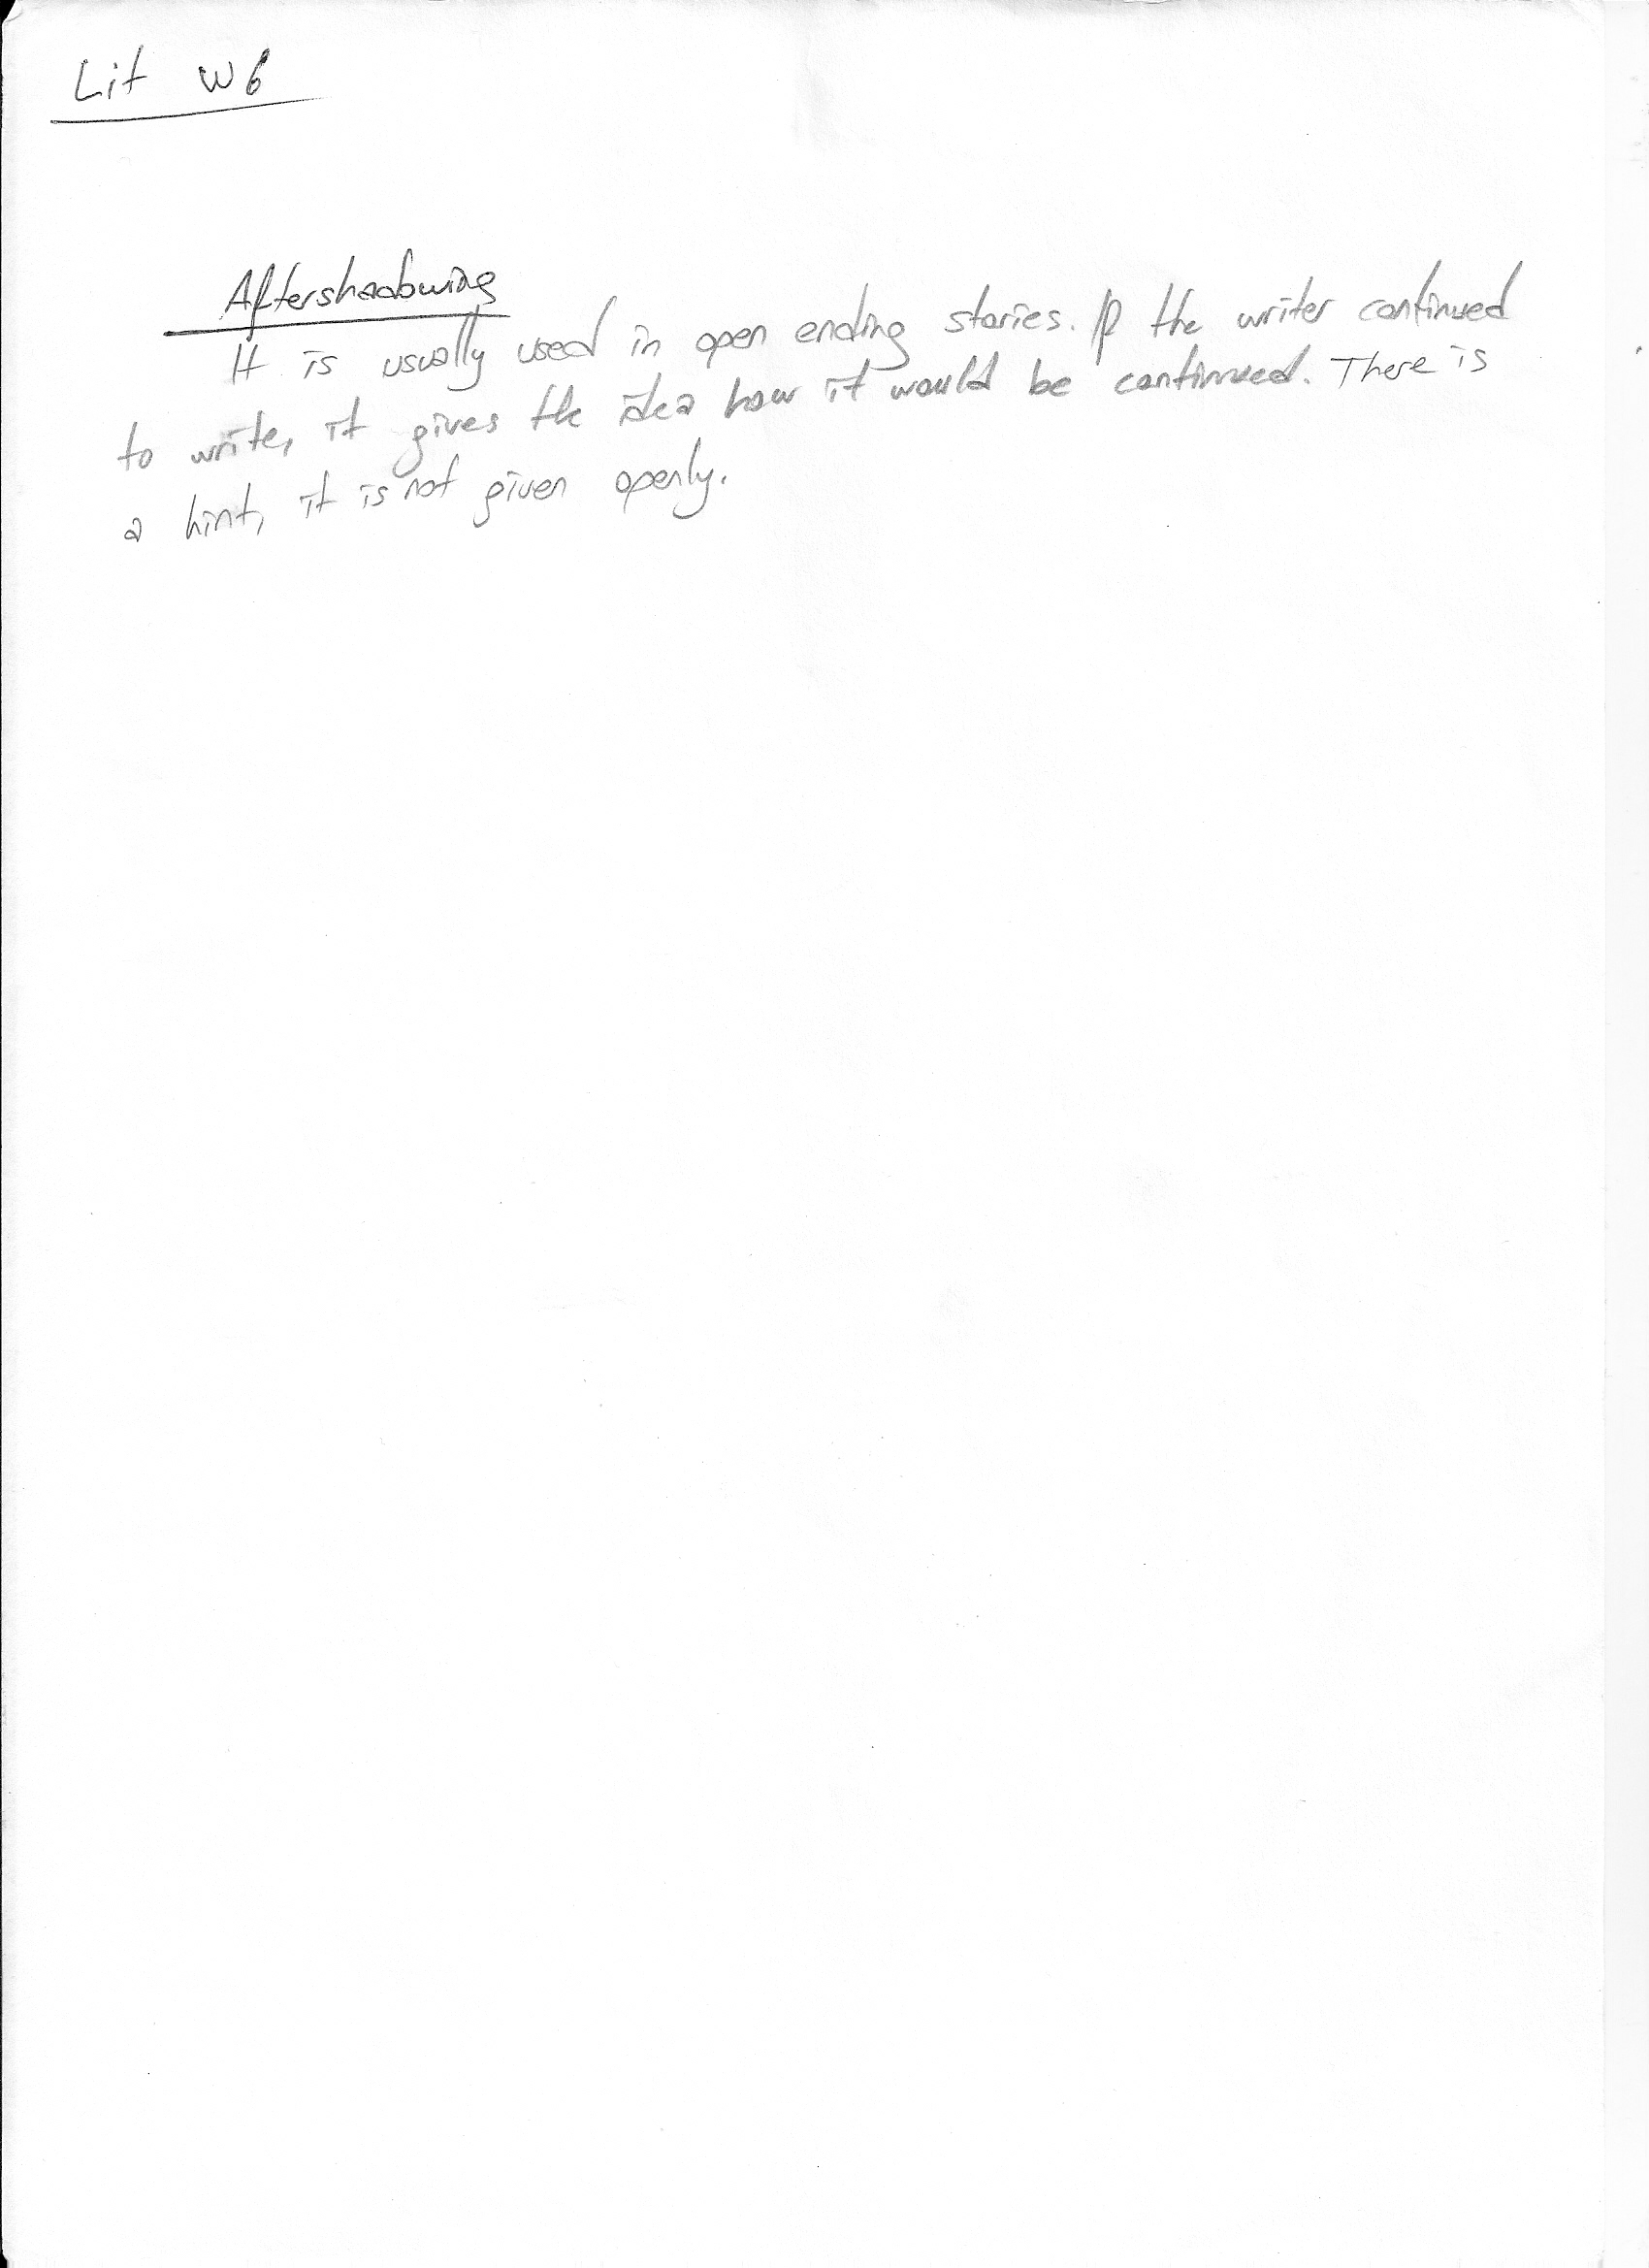 Lit W6
Aftershadowing
It is usually used in open ending stories. If the writer continued
to write, it gives the idea how it would be continued. There is
a hint, it is not given openly.